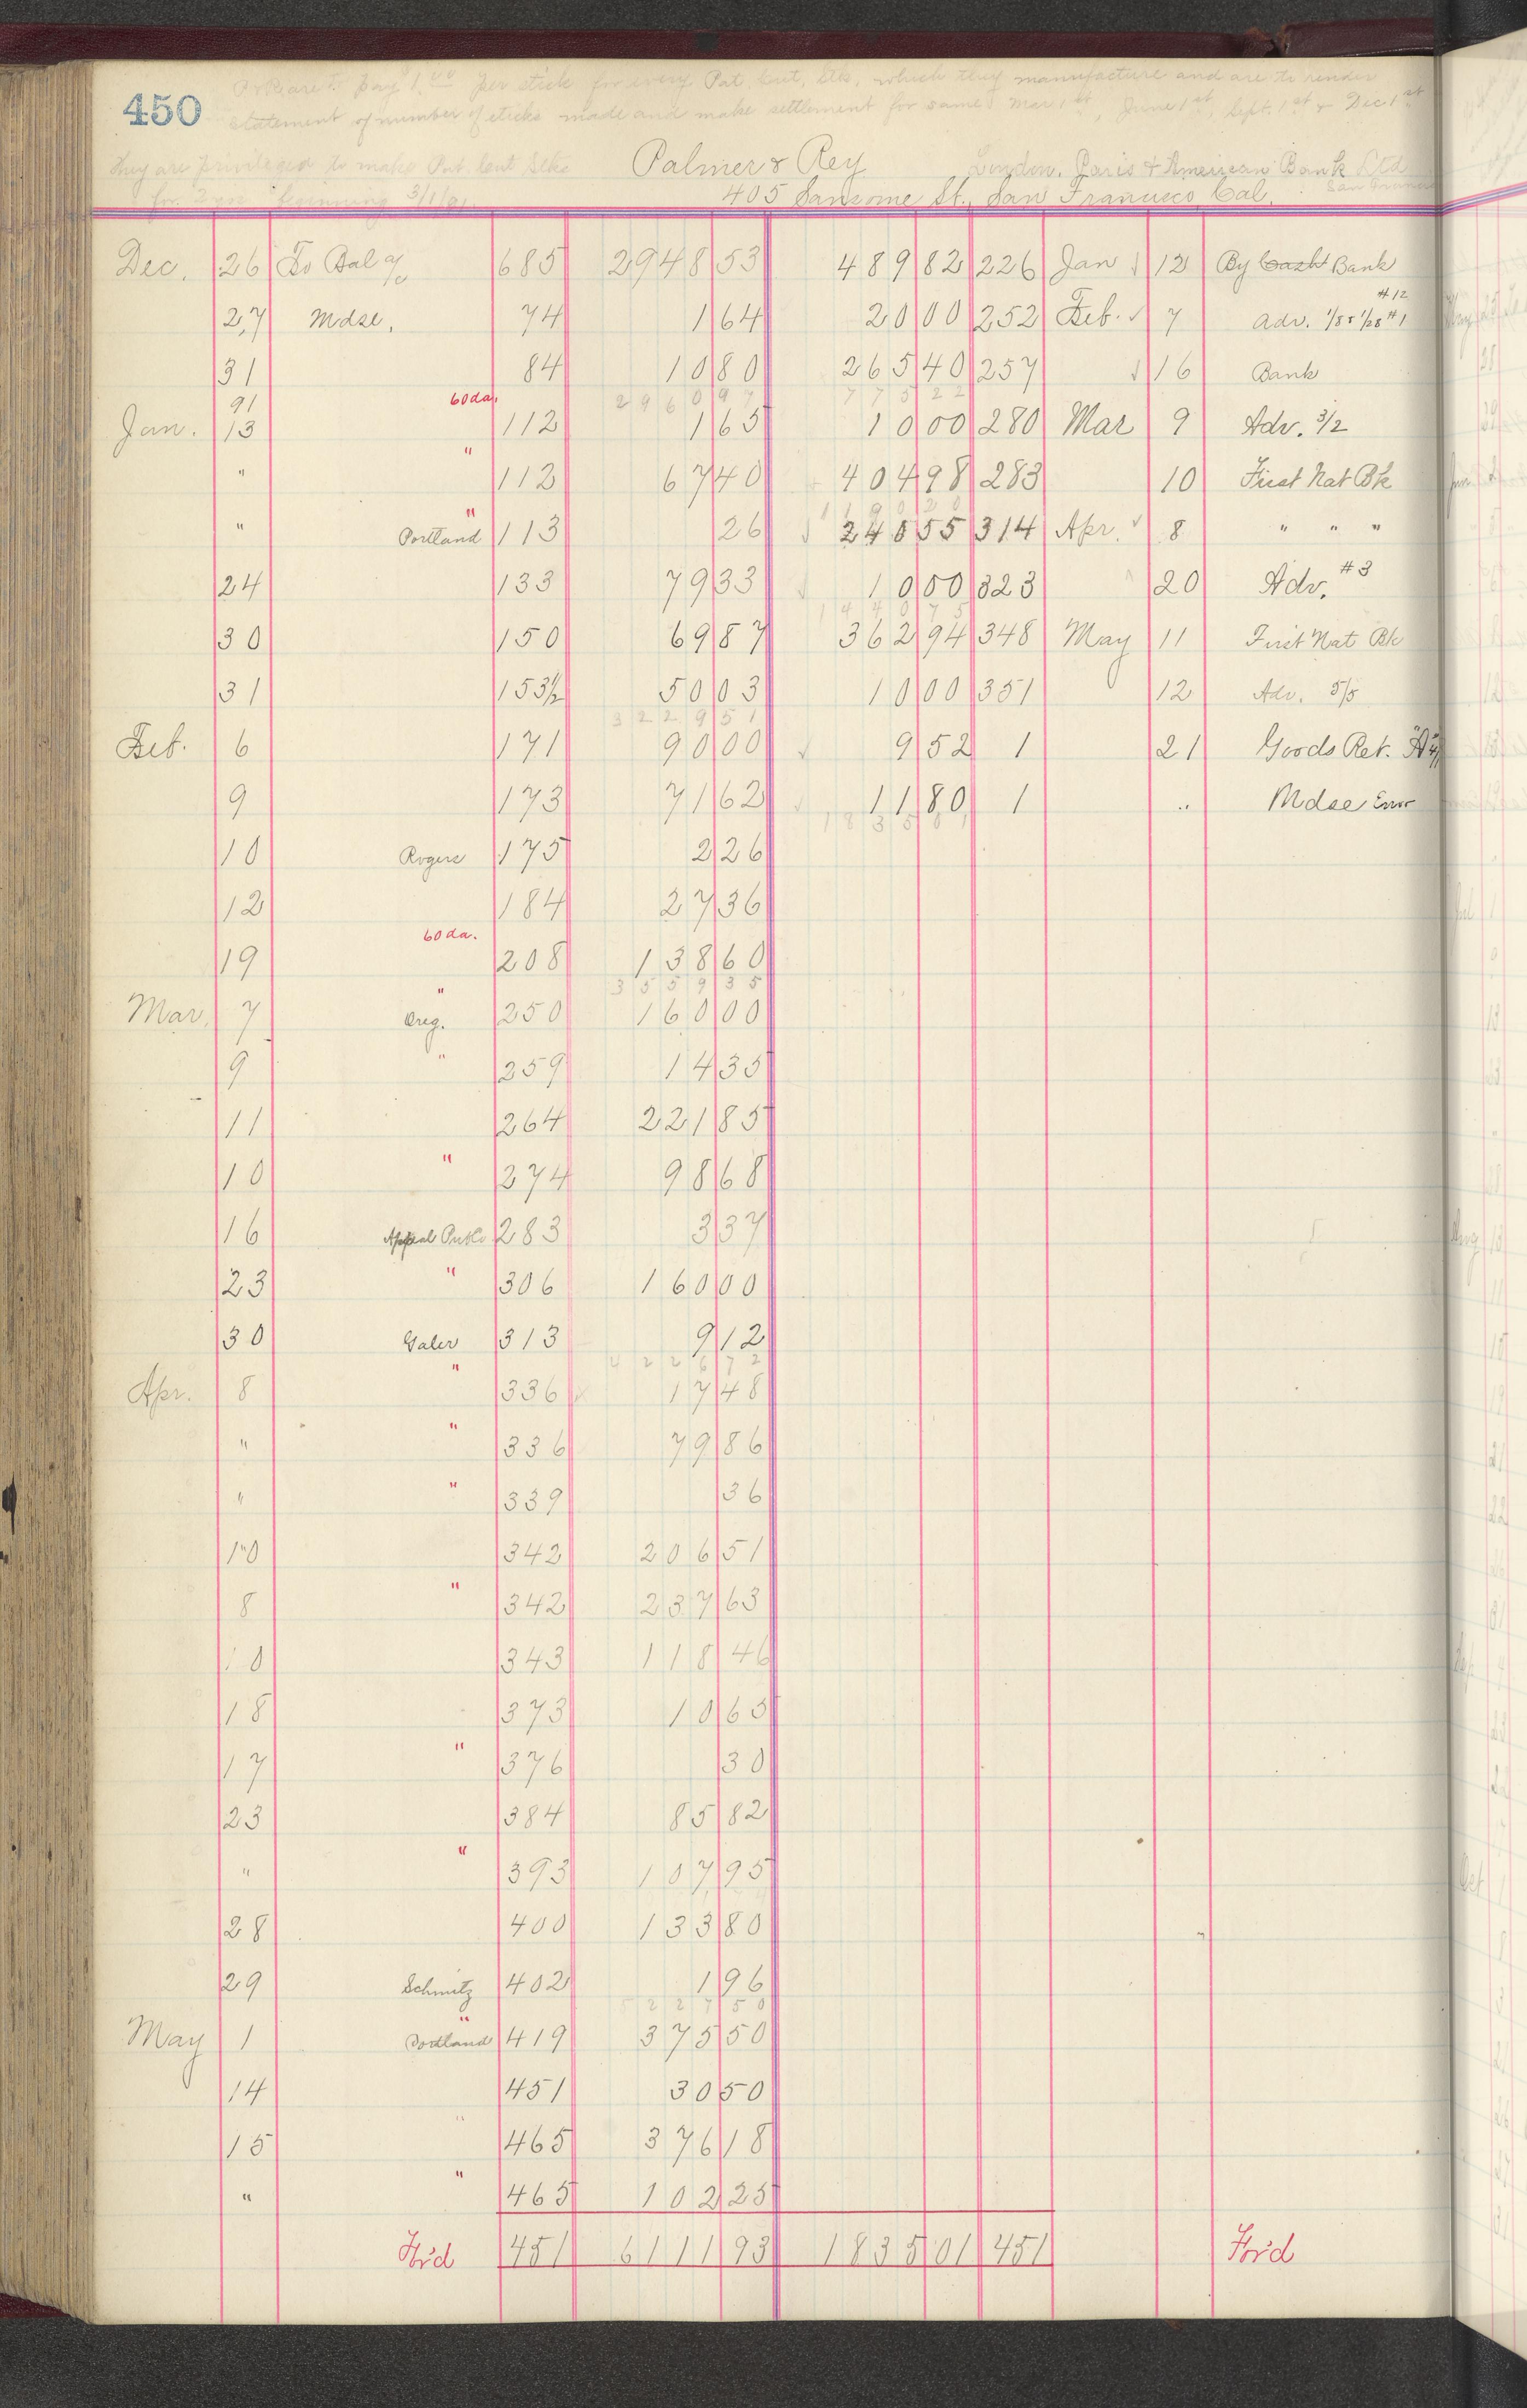 P & R are to pay 1.00 per stick for every Pat. bent, Slks which they manufacture and are to render
450
statement of number of sticks made and make settlement for same Mar 1st, June 1st, Sept. 1st & Dec 1st.
They are privileged to make Pat. bent Slks
Palmer & Rey
London, Paris & American Bank Ltd
San Francisco
for 2 yrs beginning 3/1/91.
405 Sansome St., San Francisco Cal.
Dec. 26 To Bal a/c 685 2948 53 489 82 226 Jan 12 By Cash Bank
#12
27 Mdse, 74 1 64 20 00 252 Feb. 7 Adv. 1/8 & 1/28 #1
31 84 10 80 265 40 257 16 Bank
91 60 da. 2960 97 775 22
Jan. 13 112 1 65 10 00 280 Mar 9 Adv. 3/2
" " 112 67 40 404 98 283 10 First Nat Bk
" 1190 20
" Portland 113 26 248 55 314 Apr. 8 " " "
24 133 79 33 10 00 323 20 Adv. #3
1440 75
30 150 69 87 362 94 348 May 11 First Nat Bk
31 153½ 50 03 10 00 351 12 Adv. 5/5
3229 51
Feb. 6 171 90 00 9 52 1 21 Goods Ret.
9 173 71 62 11 80 1 " Mdse Error
1835 01
10 Rogers 175 2 26
12 184 27 36
60 da.
19 208 138 60
" 3559 35
Mar. 7 Oreg. 250 160 00
9 " 259 14 35
11 264 221 85
10 " 274 98 68
16 Appeal Pub Co 283 3 37
23 " 306 160 00
30 Galer 313 9 12
" 4226 72
Apr. 8 336 17 48
" " 336 79 86
" " 339 36
10 342 206 51
8 " 342 237 63
10 343 118 46
18 373 10 63
17 " 376 30
23 384 85 82
" " 393 107 95
28 400 133 80
29 Schmitz 402 1 96
" 5227 50
May 1 Portland 419 375 50
14 451 30 50
15 " 465 376 18
" " 465 102 25
For'd 451 6111 93 1835 01 451 For'd